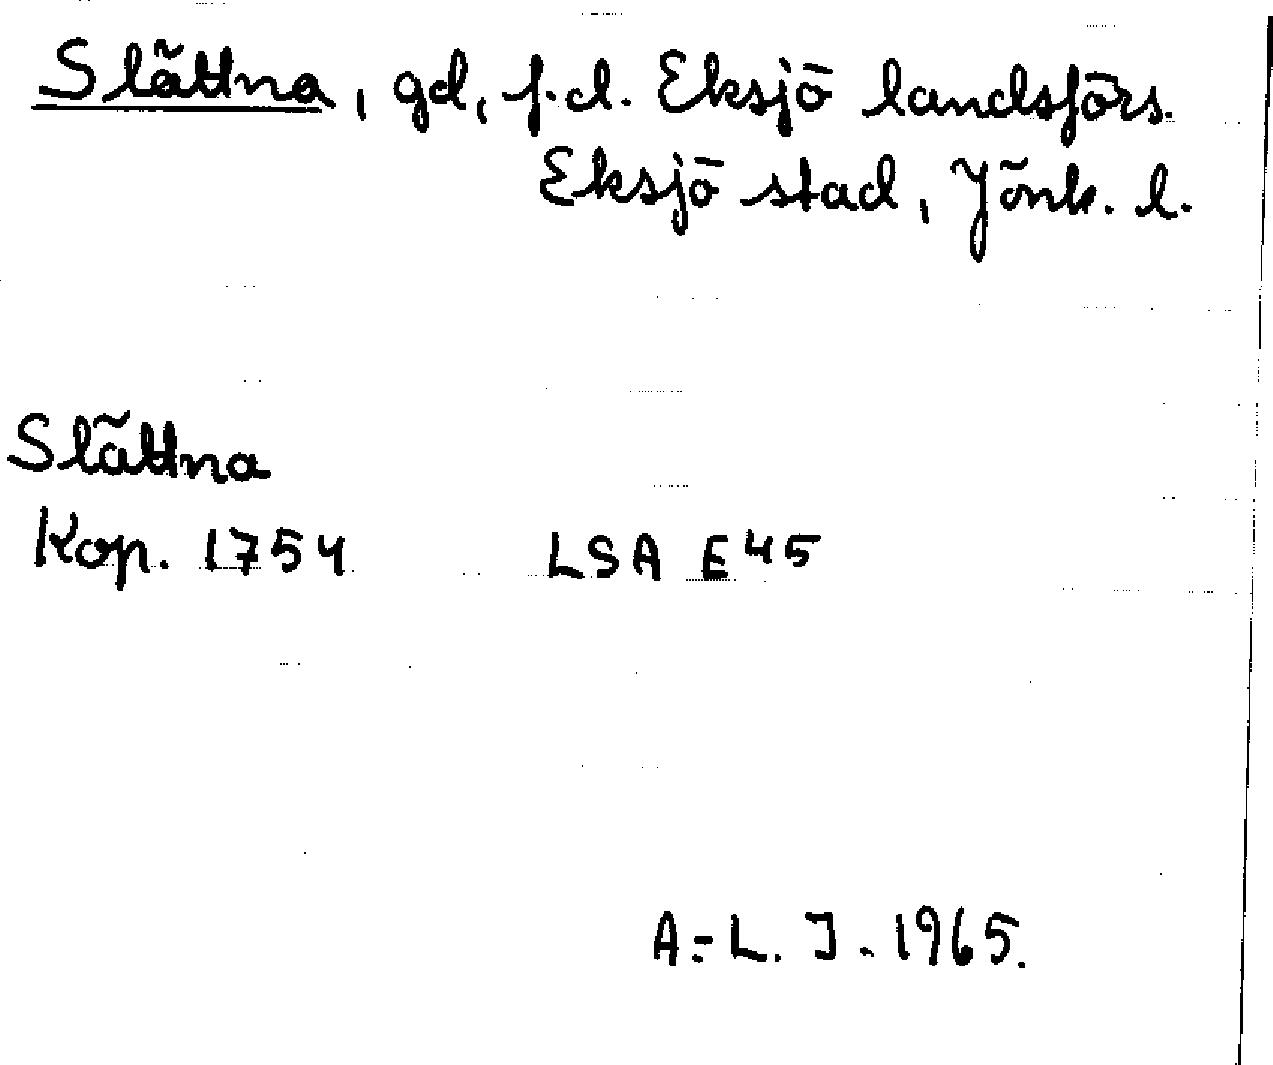 Slättna, gd, f.d. Eksjö landsförs.
Eksjö stad, Jönk. l.
Slättna
Kop. 1754 LSA E45
A.-L. J. 1965.